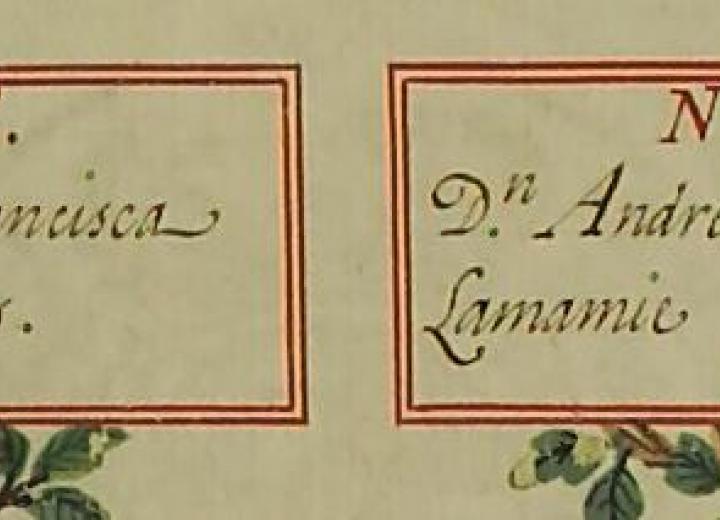 ncisca
N
D.ⁿ Andre
Lamamie